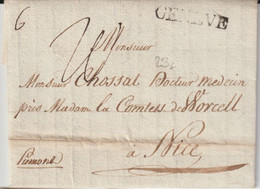 6
GENEVE
Monsieur
Monsieur Chossat Docteur Medecin
près Madam la Comtess de Worcell
à Nice
Piemont